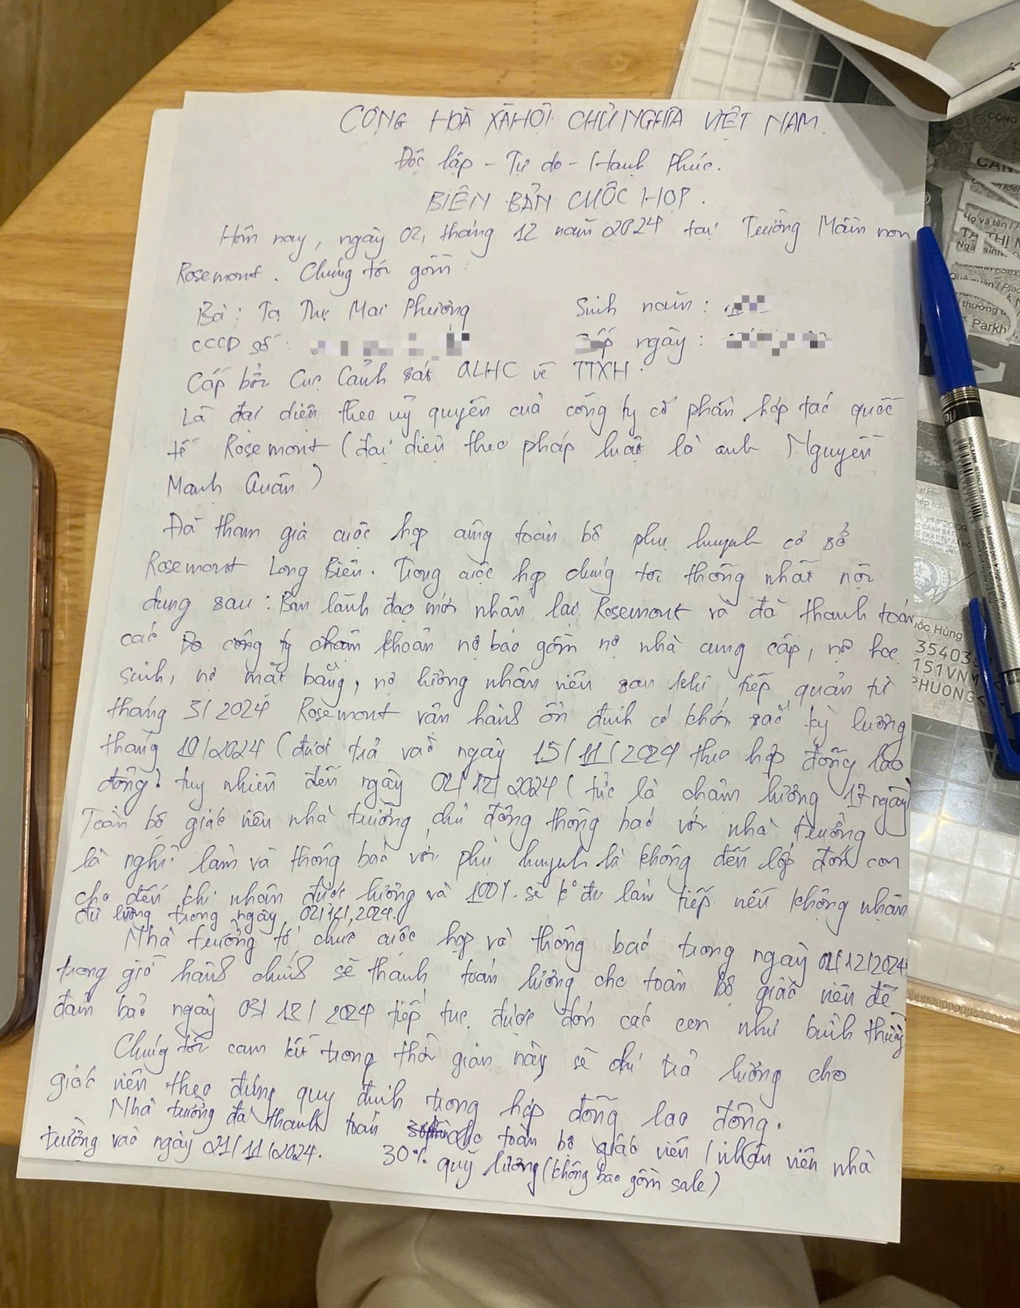 CỘNG HOÀ XÃ HỘI CHỦ NGHĨA VIỆT NAM.
Độc lập - Tự do - Hạnh Phúc.
BIÊN BẢN CUỘC HỌP.
Hôm nay, ngày 02, tháng 12 năm 2024 tại Trường Mầm non
Rosemont. Chúng tôi gồm:
Bà: Tạ Thị Mai Phương Sinh năm:
CCCD số: Cấp ngày:
Cấp bởi Cục Cảnh sát QLHC về TTXH.
Là đại diện theo uỷ quyền của công ty cổ phần hợp tác quốc
tế Rosemont (đại diện theo pháp luật là anh Nguyễn
Mạnh Quân)
Đã tham gia cuộc họp cùng toàn bộ phụ huynh cơ sở
Rosemont Long Biên. Trong cuộc họp chúng tôi thống nhất nội
dung sau: Ban lãnh đạo mới nhận lại Rosemont và đã thanh toán
các Do công ty khoản nợ bao gồm nợ nhà cung cấp, nợ học
sinh, nợ mặt bằng, nợ lương nhân viên sau khi tiếp quản từ
tháng 3/2024 Rosemont vận hành ổn định có khó sát kỳ lương
tháng 10/2024 (được trả vào ngày 15/11/2024 theo hợp đồng lao
động) tuy nhiên đến ngày 02/12/2024 (tức là chậm lương 17 ngày
Toàn bộ giáo viên nhà trường chủ động thông báo với nhà trường
là nghỉ làm và thông báo với phụ huynh là không đến lớp đón con
cho đến khi nhận được lương và 100% sẽ k đi làm tiếp nếu không nhận
đủ lương trong ngày 02/12/2024.
Nhà trường tổ chức cuộc họp và thông báo trong ngày 02/12/2024
trong giờ hành chính sẽ thanh toán lương cho toàn bộ giáo viên để
đảm bảo ngày 03/12/2024 tiếp tục được đón các con như bình thường
Chúng tôi cam kết trong thời gian này sẽ chi trả lương cho
giáo viên theo đúng quy định trong hợp đồng lao động.
Nhà trường đã thanh toán cho toàn bộ giáo viên / nhân viên nhà
trường vào ngày 21/11/2024. 30% quỹ lương (không bao gồm sale)
CĂN
Họ và tên /
TẠ THỊ M
Ngày sinh
thường t
Parkh
ốc Hùng
35403
151VNM
PHUONG